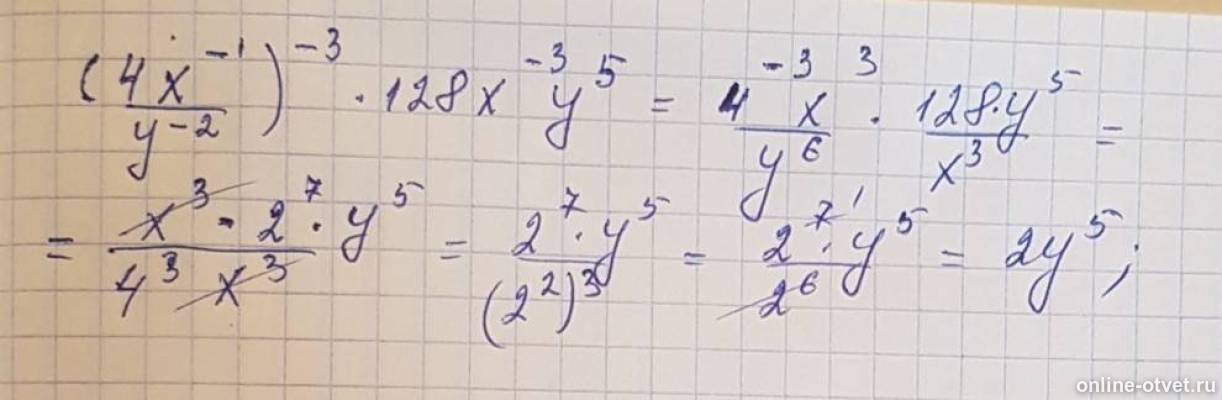 (4x⁻¹/y⁻²)⁻³ · 128x⁻³y⁵ = 4⁻³x³/y⁶ · 128·y⁵/x³ =
= x³ · 2⁷ · y⁵/4³x³ = 2⁷ · y⁵/(2²)³ = 2⁷ ¹ · y⁵/2⁶ = 2y⁵;
online-otvet.ru